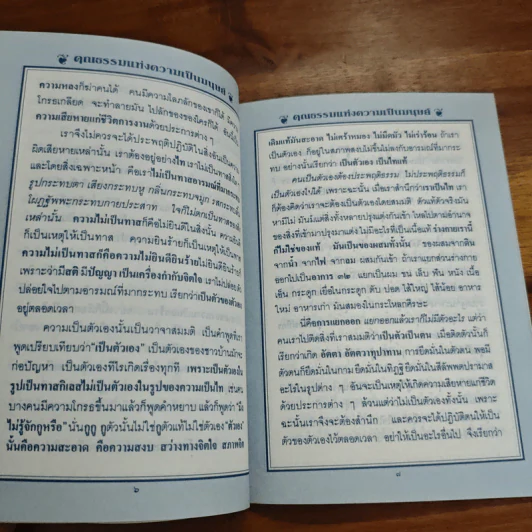 คุณธรรมแห่งความเป็นมนุษย์
ความหลงก็ฆ่าคนได้ คนมีความโลภลักของเราก็ได้
โกรธเกลียด จะทำลายมัน ไปลักของของใครก็ได้
ความเสียหายแก่ชีวิตการงานด้วยประการต่าง ๆ
เราจึงไม่ควรจะได้ประพฤติปฏิบัติในสิ่งอันเป็น
ผิดเสียหายเหล่านั้น เราต้องอยู่อย่างไท เราไม่เป็นทาส
และโดยสิ่งเฉพาะหน้า คือเราไม่เป็นทาสอารมณ์ที่มากระทบ
รูปกระทบตา เสียงกระทบหู กลิ่นกระทบจมูก รสกระทบลิ้น
โผฏฐัพพะกระทบกายประสาท ใจก็ไม่ตกเป็นทาสของสิ่ง
เหล่านั้น ความไม่เป็นทาสก็คือไม่ยินดีในสิ่งนั้น ความยินดี
ก็เป็นเหตุให้เป็นทาส ความยินร้ายก็เป็นเหตุให้เป็นทาส
ความไม่เป็นทาสก็คือความไม่ยินดียินร้ายไม่ยินดียินร้าย
เพราะว่ามีสติ มีปัญญา เป็นเครื่องกำกับจิตใจ เราไม่ปล่อย
ปล่อยใจไปตามอารมณ์ที่มากระทบ เรียกว่าเป็นตัวของตัวเอง
อยู่ตลอดเวลา
ความเป็นตัวเองนั้นเป็นวาจาสมมติ เป็นคำพูดที่เรา
พูดเปรียบเทียบว่า"เป็นตัวเอง" เป็นตัวเองของชาวบ้านมักจะ
ก่อปัญหา เป็นตัวเองทีไรเกิดเรื่องทุกที เพราะเป็นตัวเองใน
รูปเป็นทาสกิเลสไม่เป็นตัวเองในรูปของความเป็นไท เช่นคน
บางคนมีความโกรธขึ้นมาแล้วก็พูดคำหยาบ แล้วก็พูดว่า "มึง
ไม่รู้จักกูหรือ"นั่นกูกู กูตัวนั้นไม่ใช่กูตัวแท้ไม่ใช่ตัวเอง "ตัวเอง"
นั้นคือความสะอาด คือความสงบ สว่างทางจิตใจ สภาพจิต
๖
คุณธรรมแห่งความเป็นมนุษย์
เดิมแท้มันสะอาด ไม่เศร้าหมอง ไม่มืดมัว ไม่เร่าร้อน ถ้าเรา
เป็นตัวเอง ก็อยู่ในสภาพสงบไม่ขึ้นไม่ลงกับอารมณ์ที่มากระ
ทบ อย่างนั้นเรียกว่า เป็นตัวเอง เป็นไทแท้
คนเป็นตัวเองต้องประพฤติธรรม ไม่ประพฤติธรรมก็
เป็นตัวเองไม่ได้ เพราะฉะนั้น เมื่อเราสำนึกว่าเราเป็นไท เราก็
ก็ต้องคิดว่าเราจะต้องเป็นตัวเองโดยสมมติ ตัวแท้จริงมัน
หามีไม่ มันมีแต่สิ่งทั้งหลายปรุงแต่งกันเข้า ไหลไปตามอำนาจ
ของสิ่งที่เข้ามาปรุงมาแต่ง ไม่มีอะไรที่เป็นเนื้อแท้ ร่างกายเรานี้
ก็ไม่ใช่ของแท้ มันเป็นของผสมทั้งนั้น ของผสมจากดิน
จากน้ำ จากไฟ จากลม ผสมกันเข้า ถ้าเราแยกส่วนร่างกาย
ออกไปเป็นอาการ ๓๒ แยกเป็นผม ขน เล็บ ฟัน หนัง เนื้อ
เอ็น กระดูก เยื่อในกระดูก ตับ ปอด ไส้ใหญ่ ไส้น้อย อาหาร
ใหม่ อาหารเก่า มันสมองในกระโหลกศีรษะ
นี่คือการแยกออก แยกออกแล้วเราก็ไม่มีตัวอะไร แต่ว่า
คนเราไปติดสิ่งที่เราสมมติว่าเป็นตัวเป็นตน เมื่อติดตัวนั้นก็
เรียกว่าเกิด อัตตา อัตตาทุปาทาน การยึดมั่นในตัวตน พอมี
ตัวตนก็ยึดมั่นในกาม ยึดมั่นในทิฏฐิ ยึดมั่นในสีลัพพตปรามาส
อะไรในรูปต่าง ๆ อันจะเป็นเหตุให้เกิดความเสียหายแก่ชีวิต
ด้วยประการ ต่าง ๆ ล้วนแต่ว่าไม่เป็นตัวเองทั้งนั้น เพราะ
ฉะนั้นเราจึงจะต้องสำนึก และควรจะได้ปฏิบัติตนให้เป็น
ตัวของตัวเองไว้ตลอดเวลา อย่าให้เป็นอะไรอื่นไป จึงเรียกว่า
๗